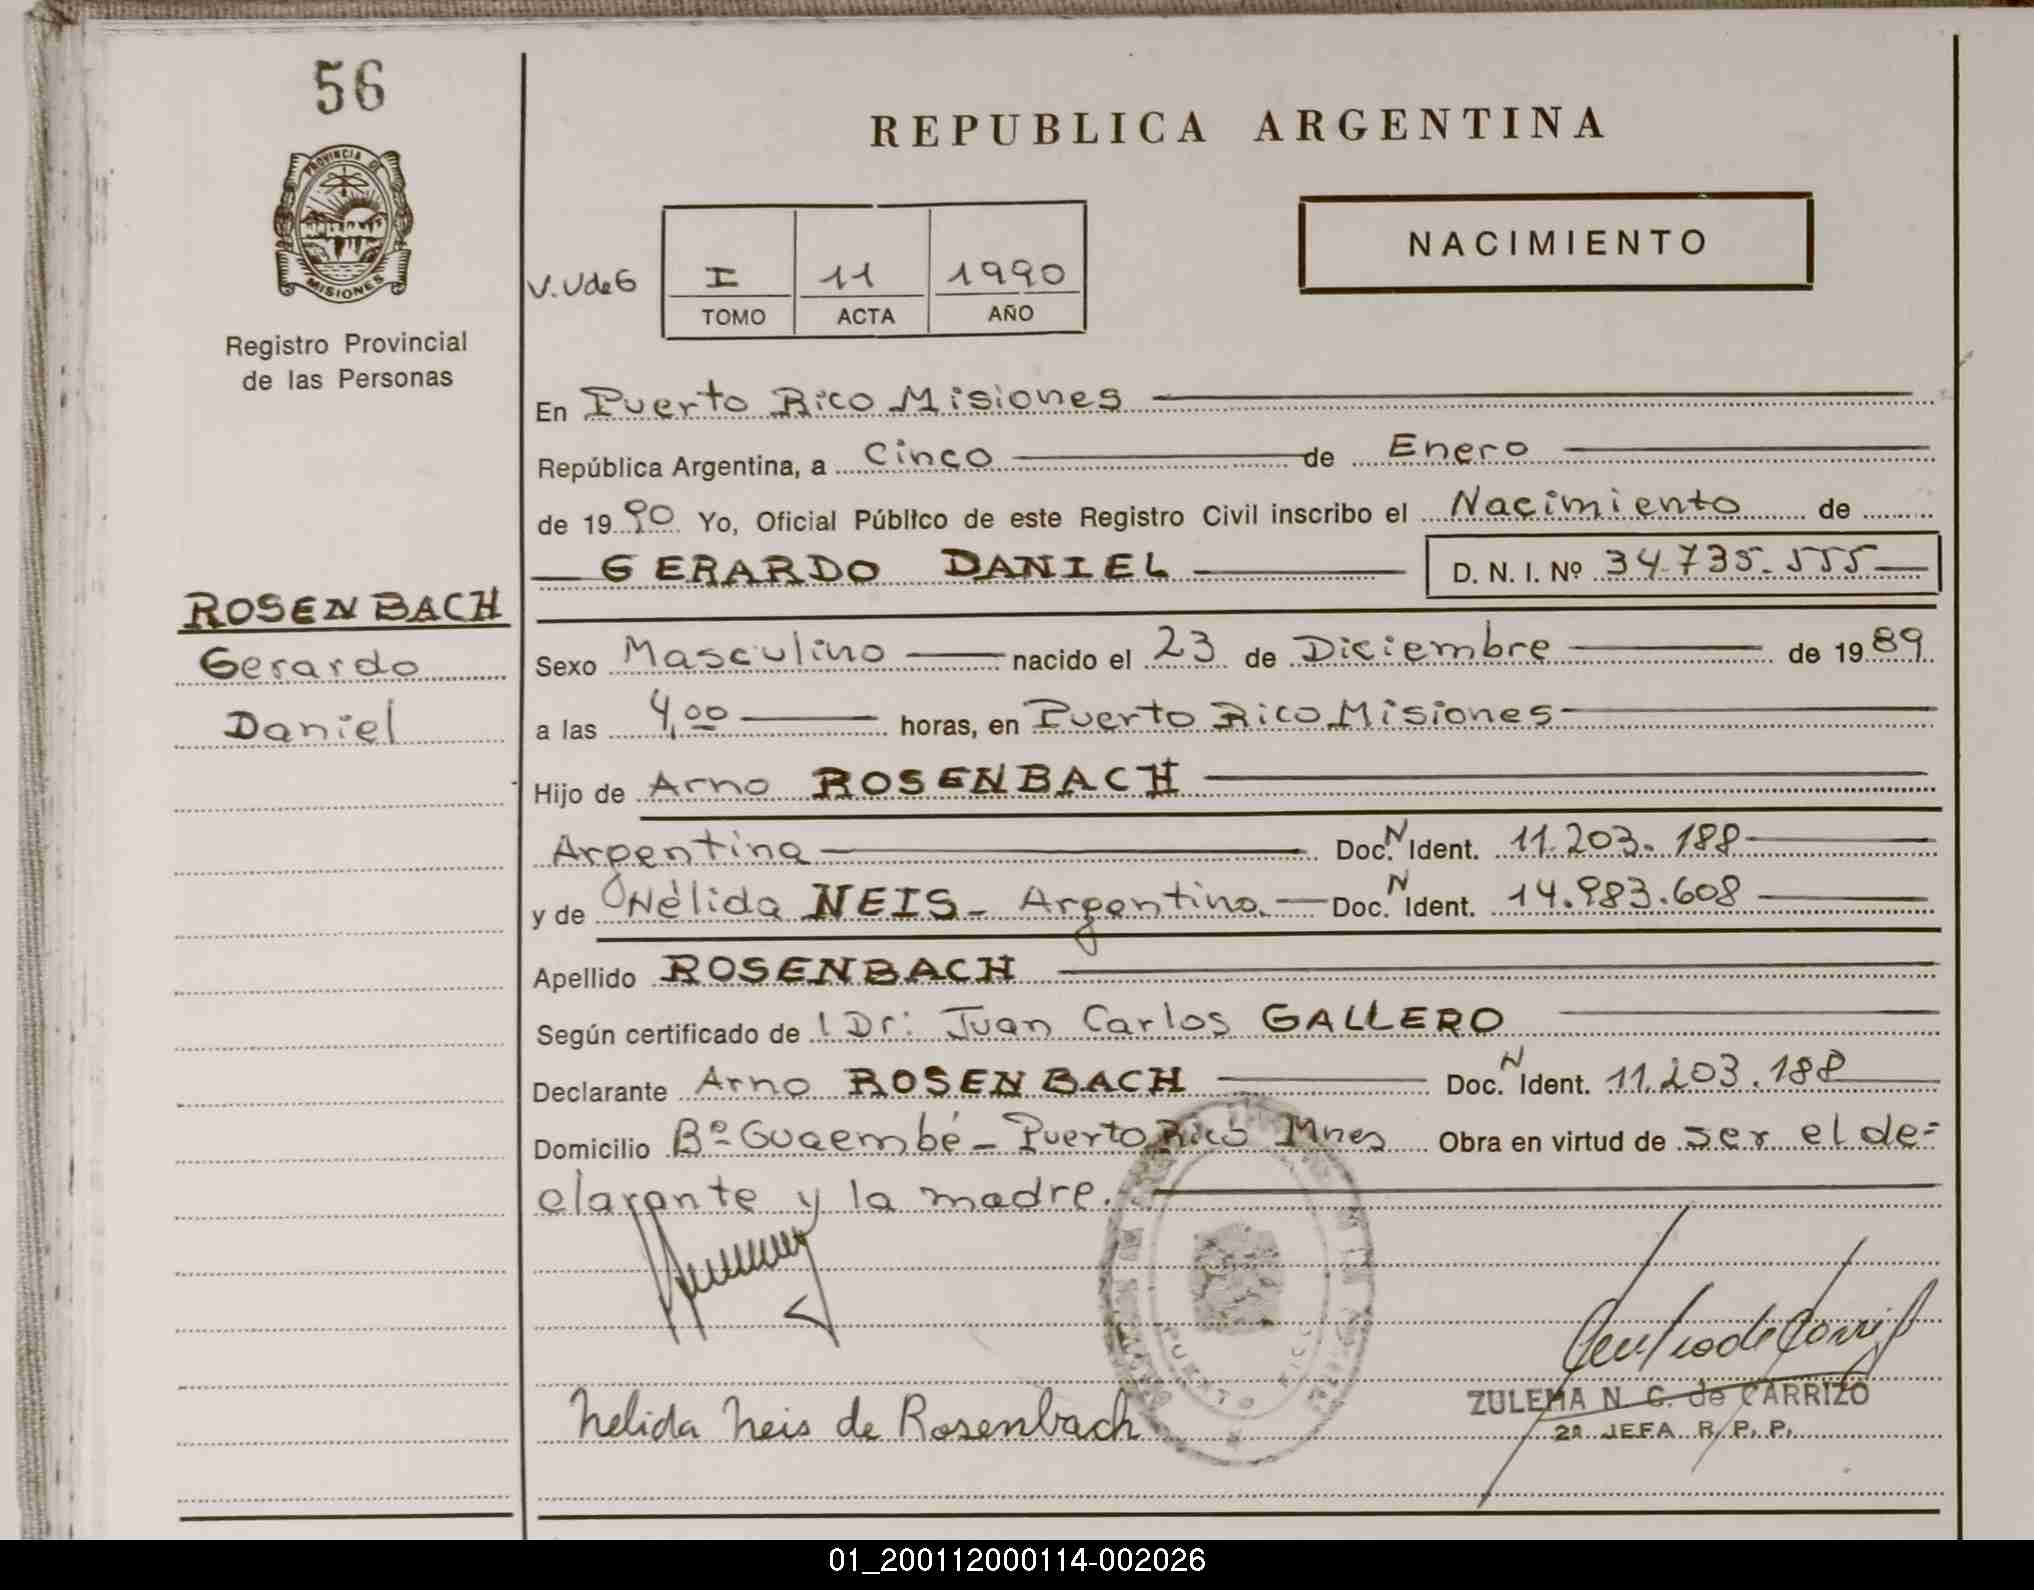 56
REPUBLICA ARGENTINA
PROVINCIA DE
MISIONES
Registro Provincial
de las Personas
NACIMIENTO
V. Ude G
I 11 1990
TOMO ACTA AÑO
En Puerto Rico Misiones
República Argentina, a Cinco de Enero
de 1990 Yo, Oficial Público de este Registro Civil inscribo el Nacimiento de
GERARDO DANIEL D. N. I. Nº 34.735.555
ROSENBACH
Gerardo
Daniel
Sexo Masculino nacido el 23 de Diciembre de 1989
a las 4,00 horas, en Puerto Rico Misiones
Hijo de Arno ROSENBACH
Argentina Doc. N Ident. 11.203.188
y de Nélida NEIS - Argentina. Doc. N Ident. 14.983.608
Apellido ROSENBACH
Según certificado de Dr: Juan Carlos GALLERO
Declarante Arno ROSENBACH Doc. N Ident. 11.203.188
Domicilio Bº Guaembé - Puerto Rico Mnes Obra en virtud de ser el de=
clarante y la madre.
Nelida Neis de Rosenbach
ZULEMA N. G. de CARRIZO
2ª JEFA R. P. P.
01_200112000114-002026